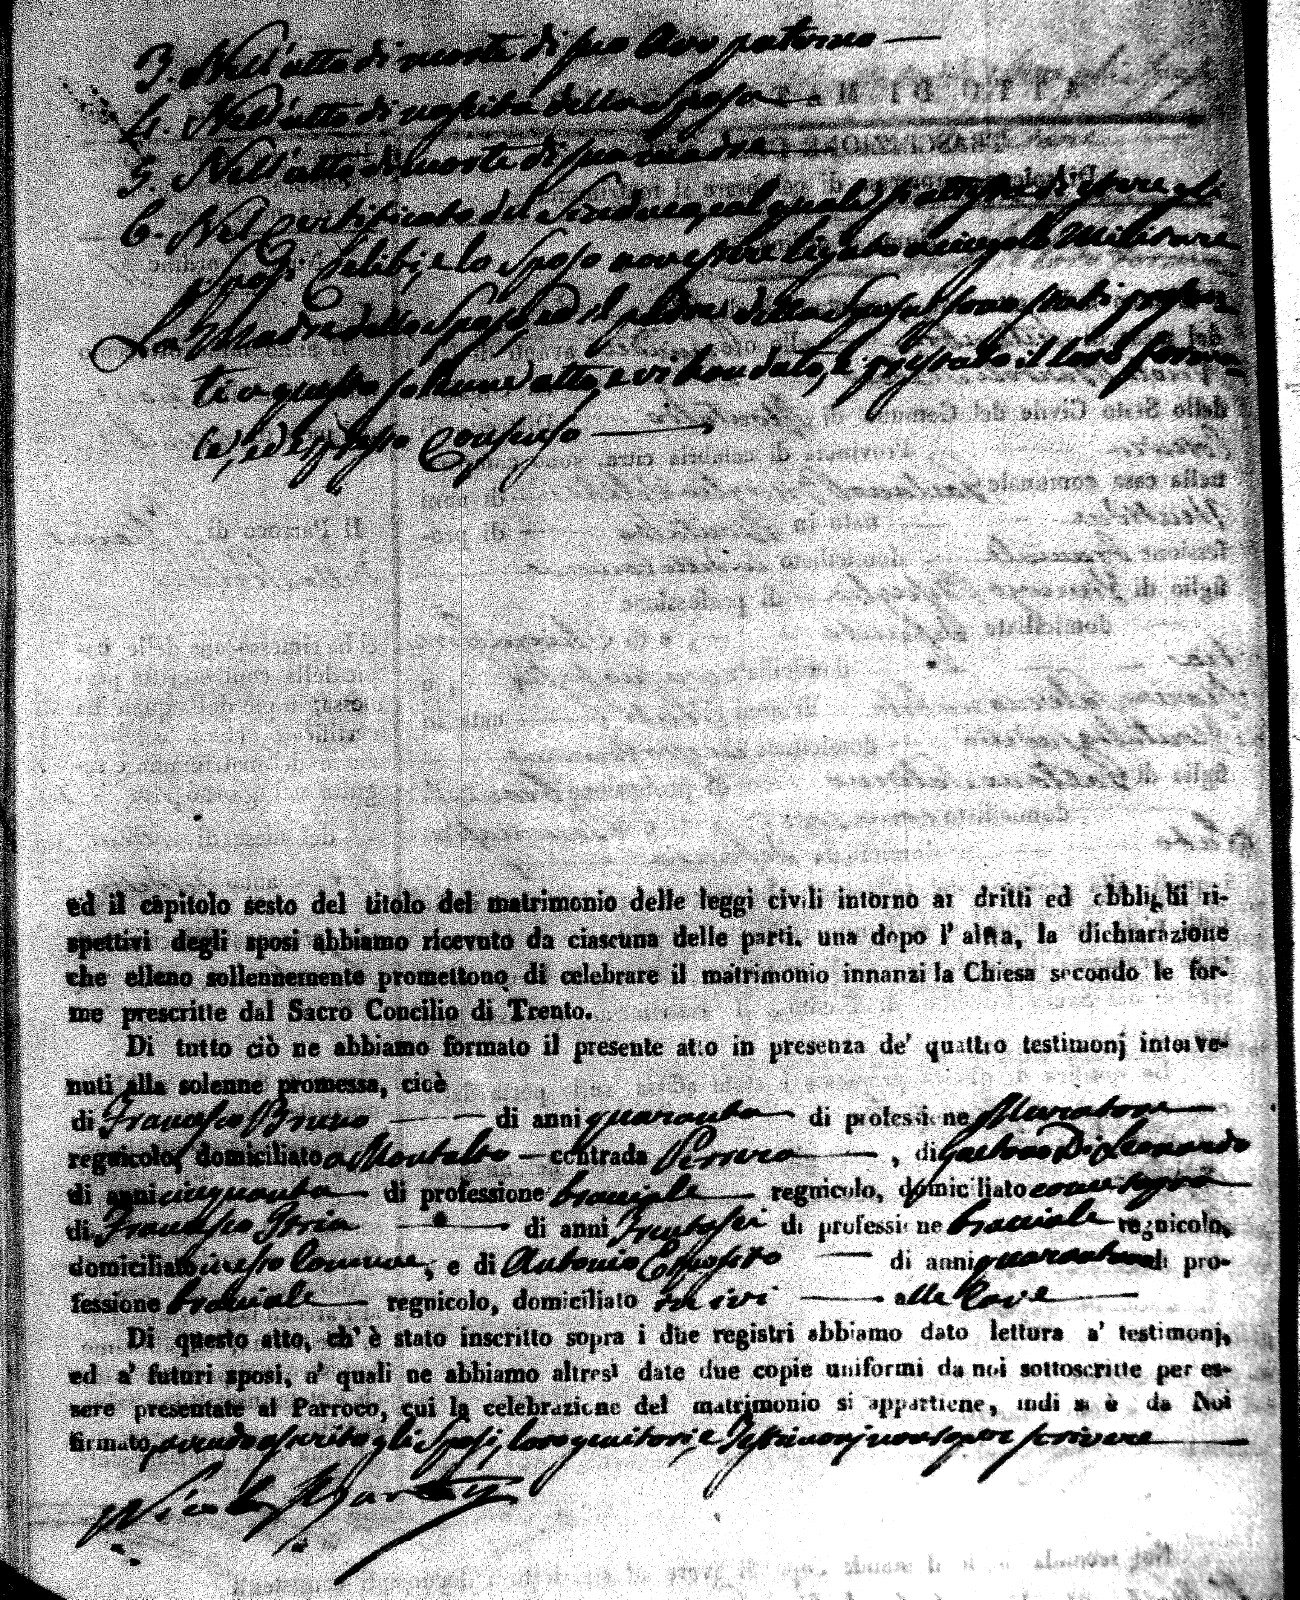 3. Nell'atto di morte di suo Avo paterno —
4. Nell'atto di nascita della Sposa —
5. Nell'atto di morte di sua madre
6. Nel Certificato del Sindaco, pel quale si attesta di essere gli
sposi Celibi, e lo Sposo non essere legato a vincolo Militare
La Madre dello Sposo, ed il padre della Sposa sono stati presen
ti a questo solenne atto, e vi han dato, e prestato il loro forma
le, ed espresso Consenso —
ed il capitolo sesto del titolo del matrimonio delle leggi civili intorno ai dritti ed obblighi ri-
spettivi degli sposi abbiamo ricevuto da ciascuna delle parti, una dopo l' altra, la dichiarazione
che elleno sollennemente promettono di celebrare il matrimonio innanzi la Chiesa secondo le for-
me prescritte dal Sacro Concilio di Trento.
Di tutto ciò ne abbiamo formato il presente atto in presenza de' quattro testimonj interve-
nuti alla solenne promessa, cioè
di Francesco Bruno — di anni quaranta di professione Muratore
regnicolo, domiciliato a Montalto — contrada , di Gaetano Di Leonardo
di anni cinquanta di professione bracciale regnicolo, domiciliato come sopra
di Francesco Iiria — di anni trentasei di professione bracciale regnicolo,
domiciliato in esso Comune, e di Antonio Esposito — di anni quaranta di pro-
fessione bracciale regnicolo, domiciliato in ivi — alle Cave
Di questo atto, ch' è stato inscritto sopra i due registri abbiamo dato lettura a' testimonj,
ed a' futuri sposi, a' quali ne abbiamo altresì date due copie uniformi da noi sottoscritte per es-
sere presentate al Parroco, cui la celebrazione del matrimonio si appartiene, indi si è da Noi
firmato, avendo asserito gli Sposi, loro genitori, e Testimonj non sapere scrivere